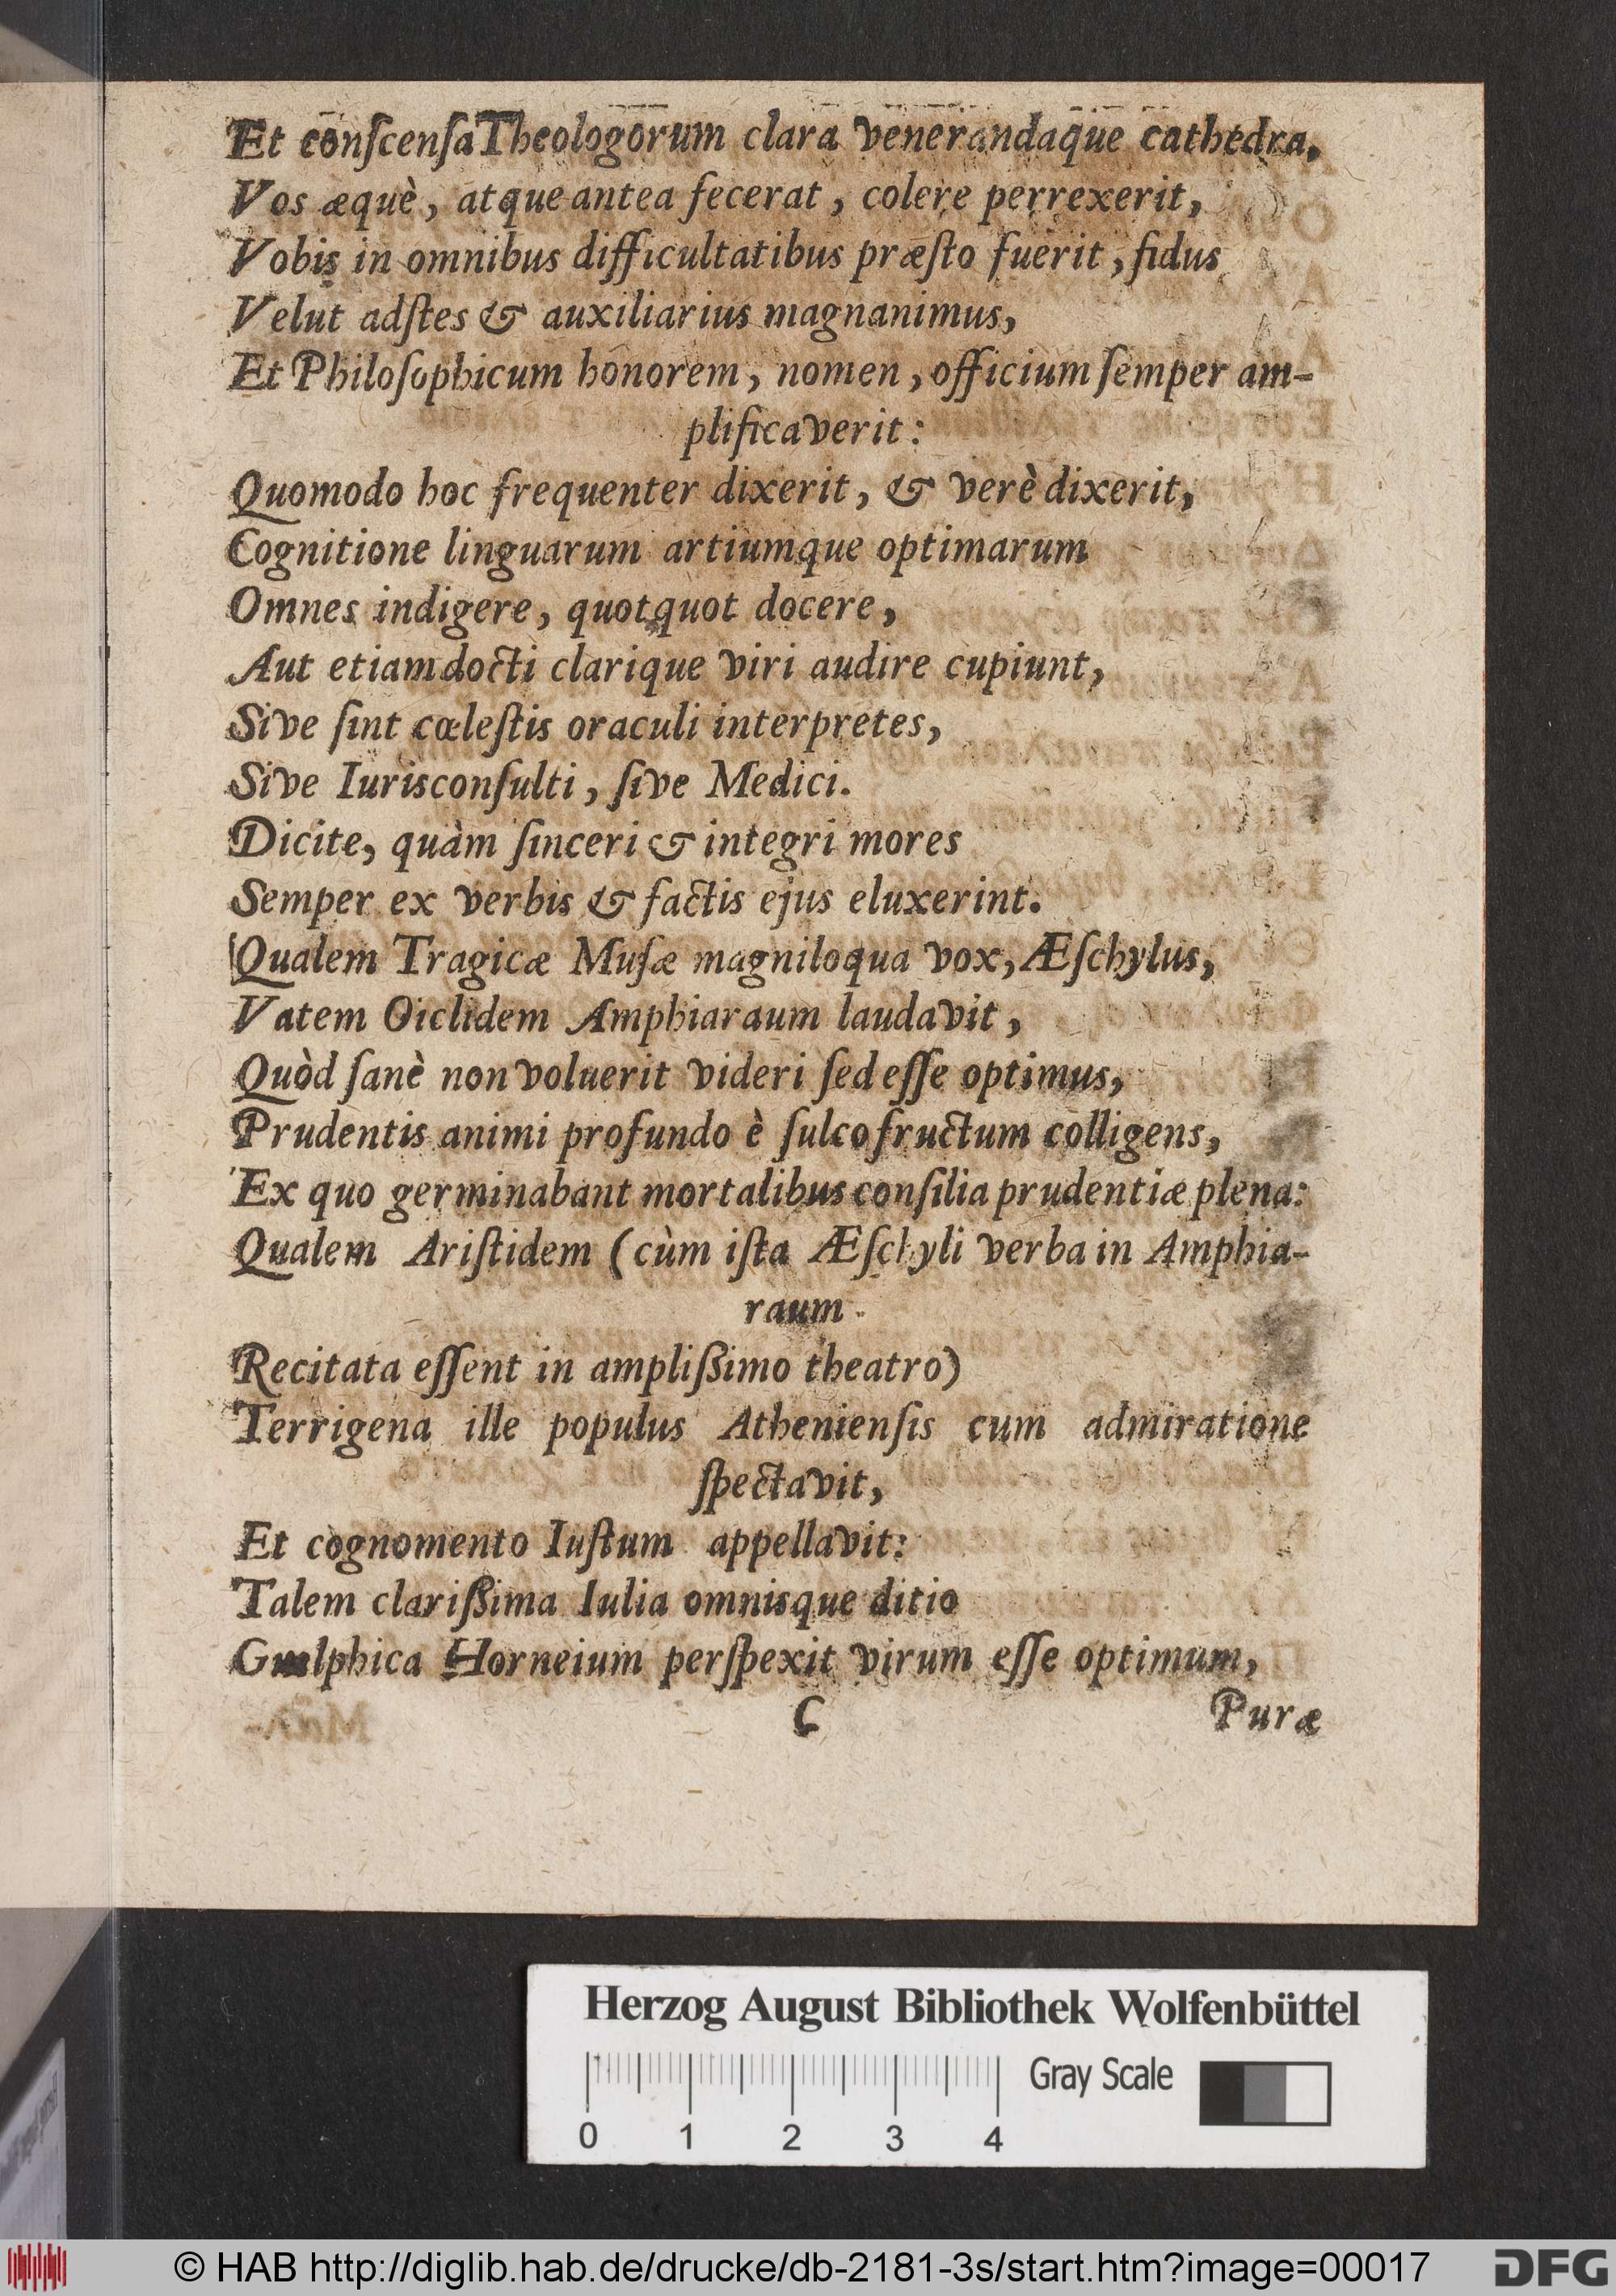 Et conſcenſa Theologorum clara venerandaque cathedra,
Vos æquè, atque antea fecerat, colere perrexerit,
Vobis in omnibus difficultatibus præſto fuerit, fidus
Velut adſtes & auxiliarius magnanimus,
Et Philoſophicum honorem, nomen, officium ſemper am-
plificaverit:
Quomodo hoc frequenter dixerit, & verè dixerit,
Cognitione linguarum artiumque optimarum
Omnes indigere, quotquot docere,
Aut etiam docti clarique viri audire cupiunt,
Sive ſint cœleſtis oraculi interpretes,
Sive Iurisconſulti, ſive Medici.
Dicite, quàm ſinceri & integri mores
Semper ex verbis & factis ejus eluxerint.
Qualem Tragicæ Muſæ magniloqua vox, Æſchylus,
Vatem Oiclidem Amphiaraum laudavit,
Quòd ſanè non voluerit videri ſed eſſe optimus,
Prudentis animi profundo è ſulco fructum colligens,
Ex quo germinabant mortalibus conſilia prudentiæ plena:
Qualem Ariſtidem (cùm iſta Æſchyli verba in Amphia-
raum
Recitata eſſent in ampliſſimo theatro)
Terrigena ille populus Athenienſis cum admiratione
ſpectavit,
Et cognomento Iuſtum appellavit:
Talem clariſſima Iulia omnisque ditio
Guelphica Horneium perſpexit virum eſſe optimum,
C Puræ
Herzog August Bibliothek Wolfenbüttel
Gray Scale
0 1 2 3 4
© HAB http://diglib.hab.de/drucke/db-2181-3s/start.htm?image=00017 DFG